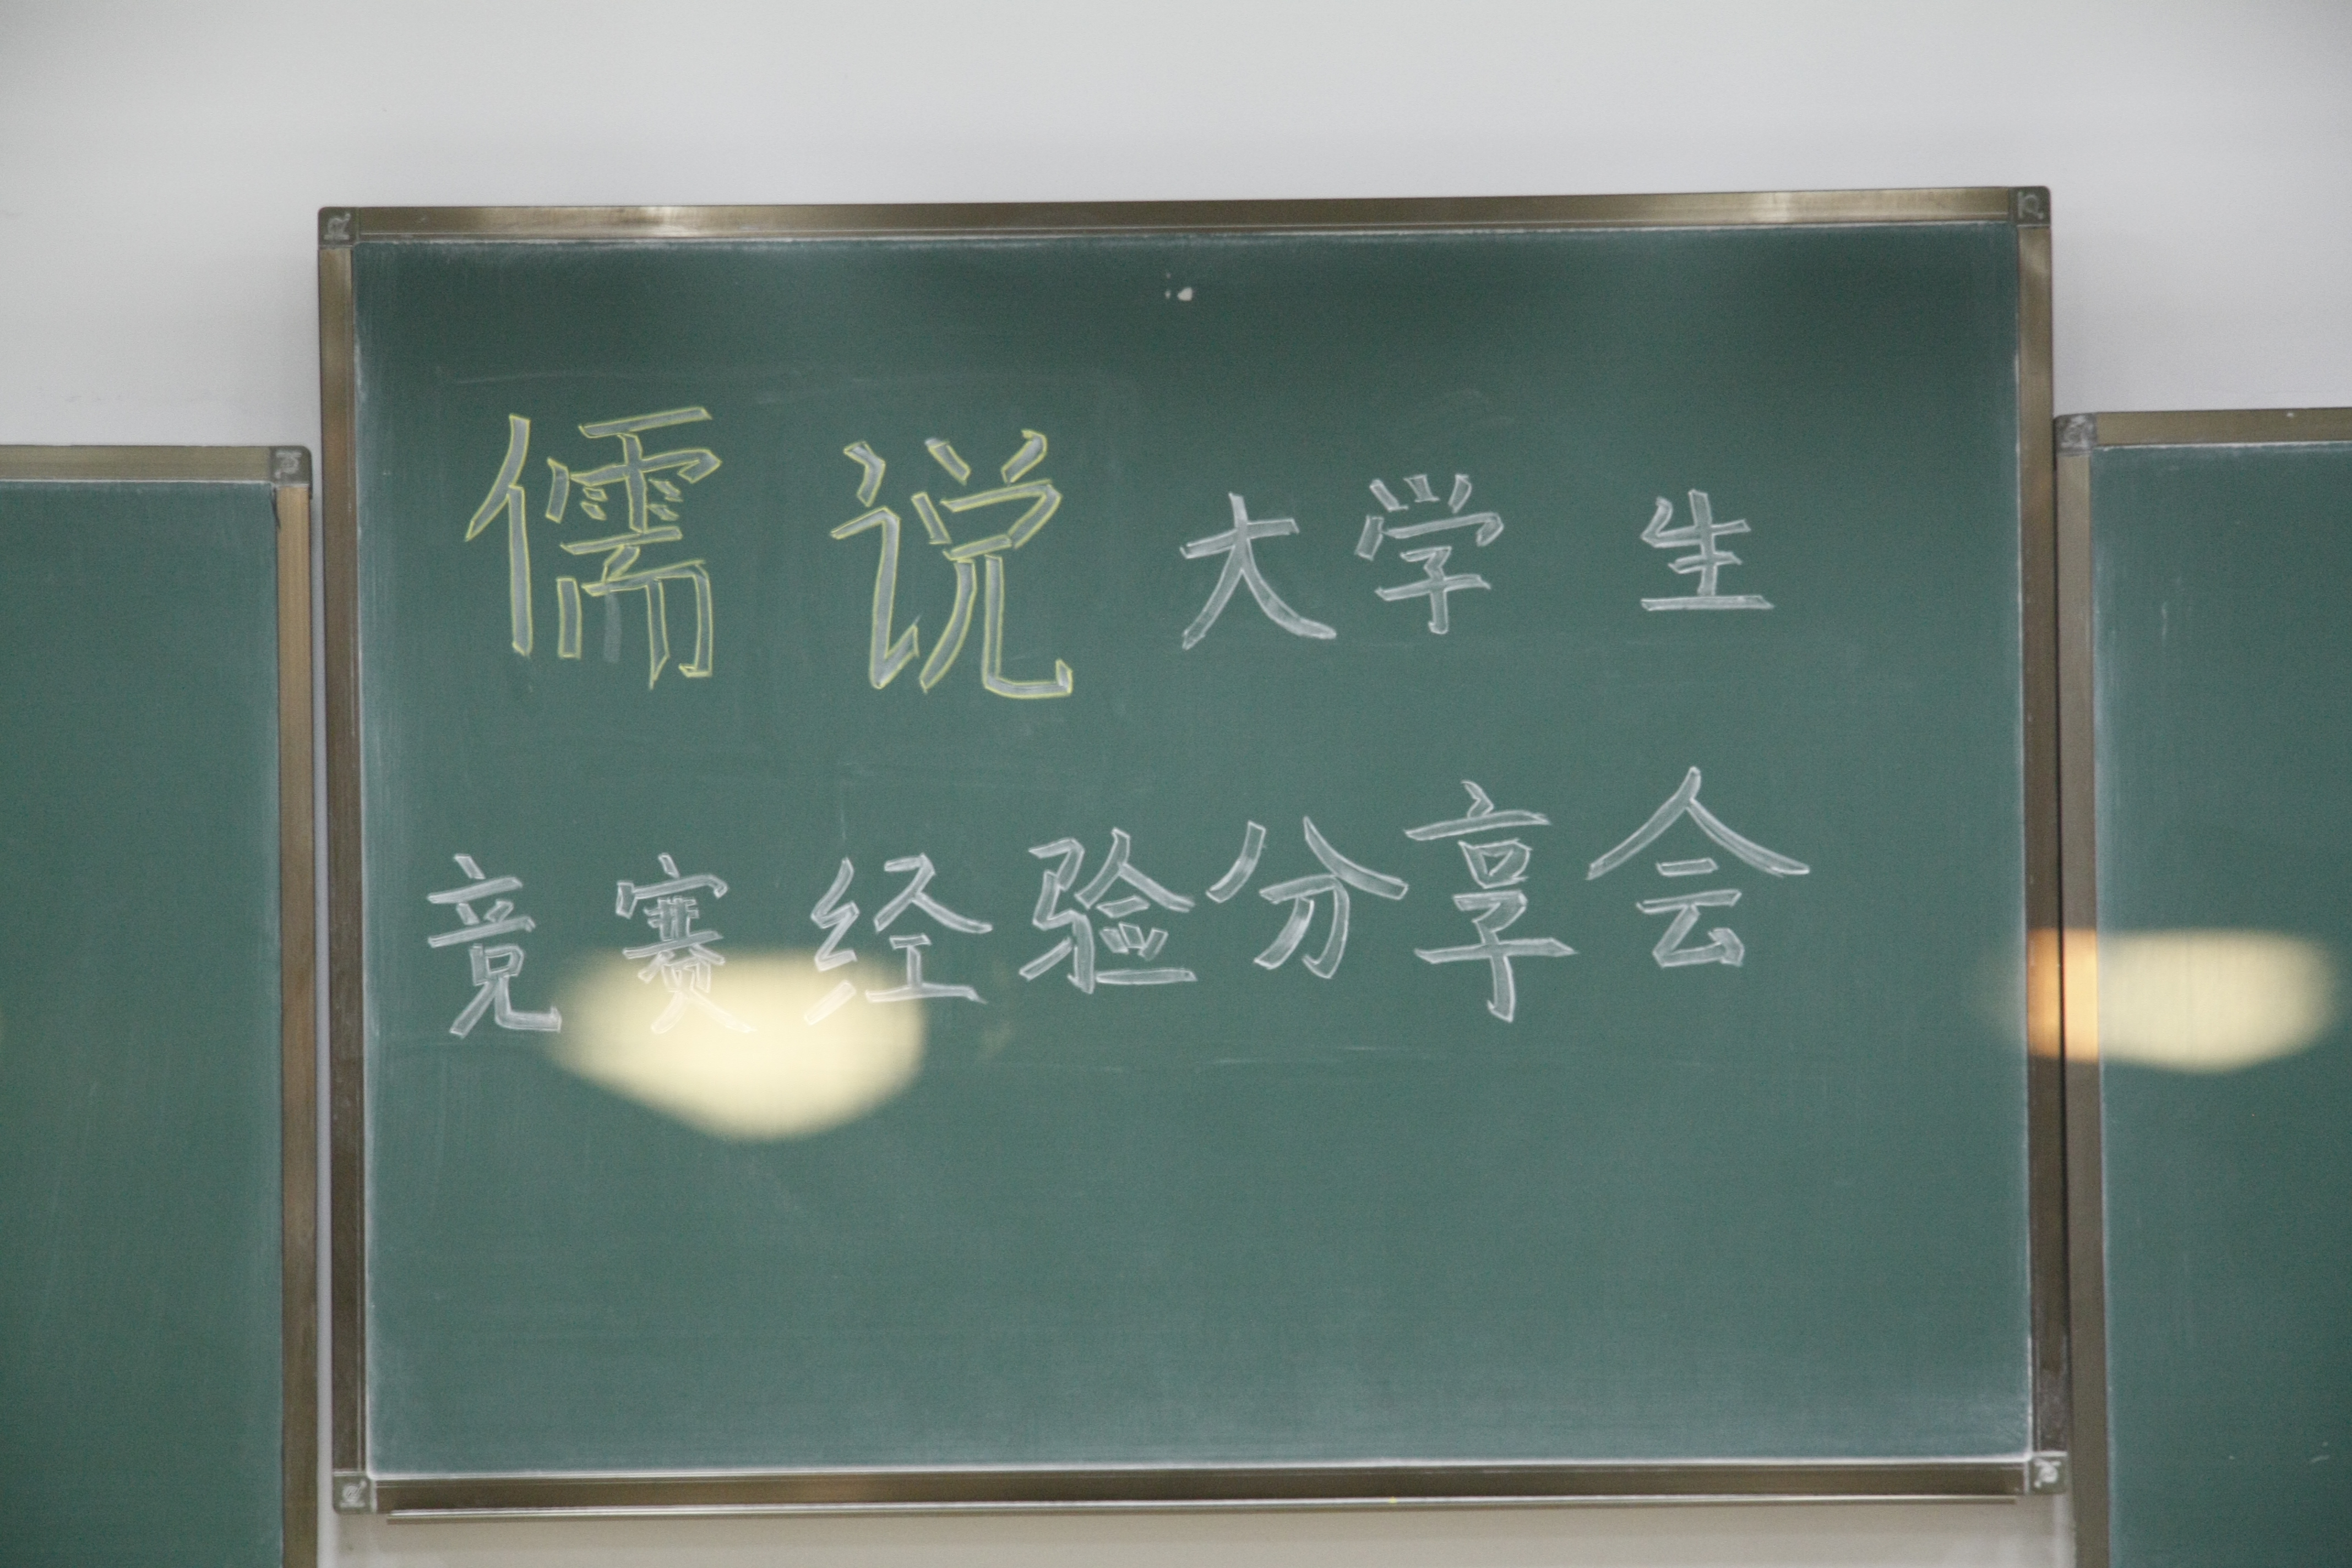 儒说大学生
竞赛经验分享会